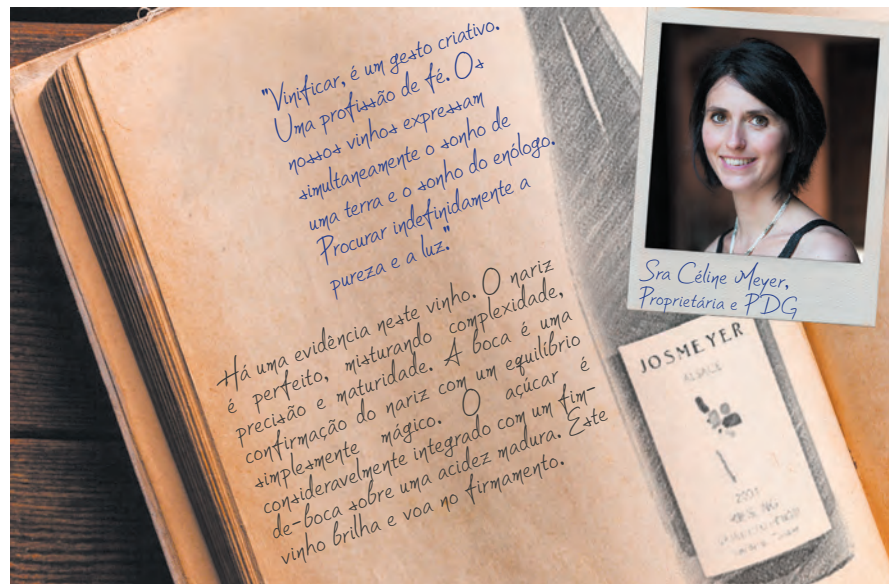 "Vinificar, é um gesto criativo.
Uma profissão de fé. Os
nossos vinhos expressam
simultaneamente o sonho de
uma terra e o sonho do enólogo.
Procurar indefinidamente a
pureza e a luz."
Há uma evidência neste vinho. O nariz
é perfeito, misturando complexidade,
precisão e maturidade. A boca é uma
confirmação do nariz com um equilíbrio
simplesmente mágico. O açúcar é
consideravelmente integrado com um fim-
de-boca sobre uma acidez madura. Este
vinho brilha e voa no firmamento.
Sra Céline Meyer,
Proprietária e PDG
JOSMEYER
ALSACE